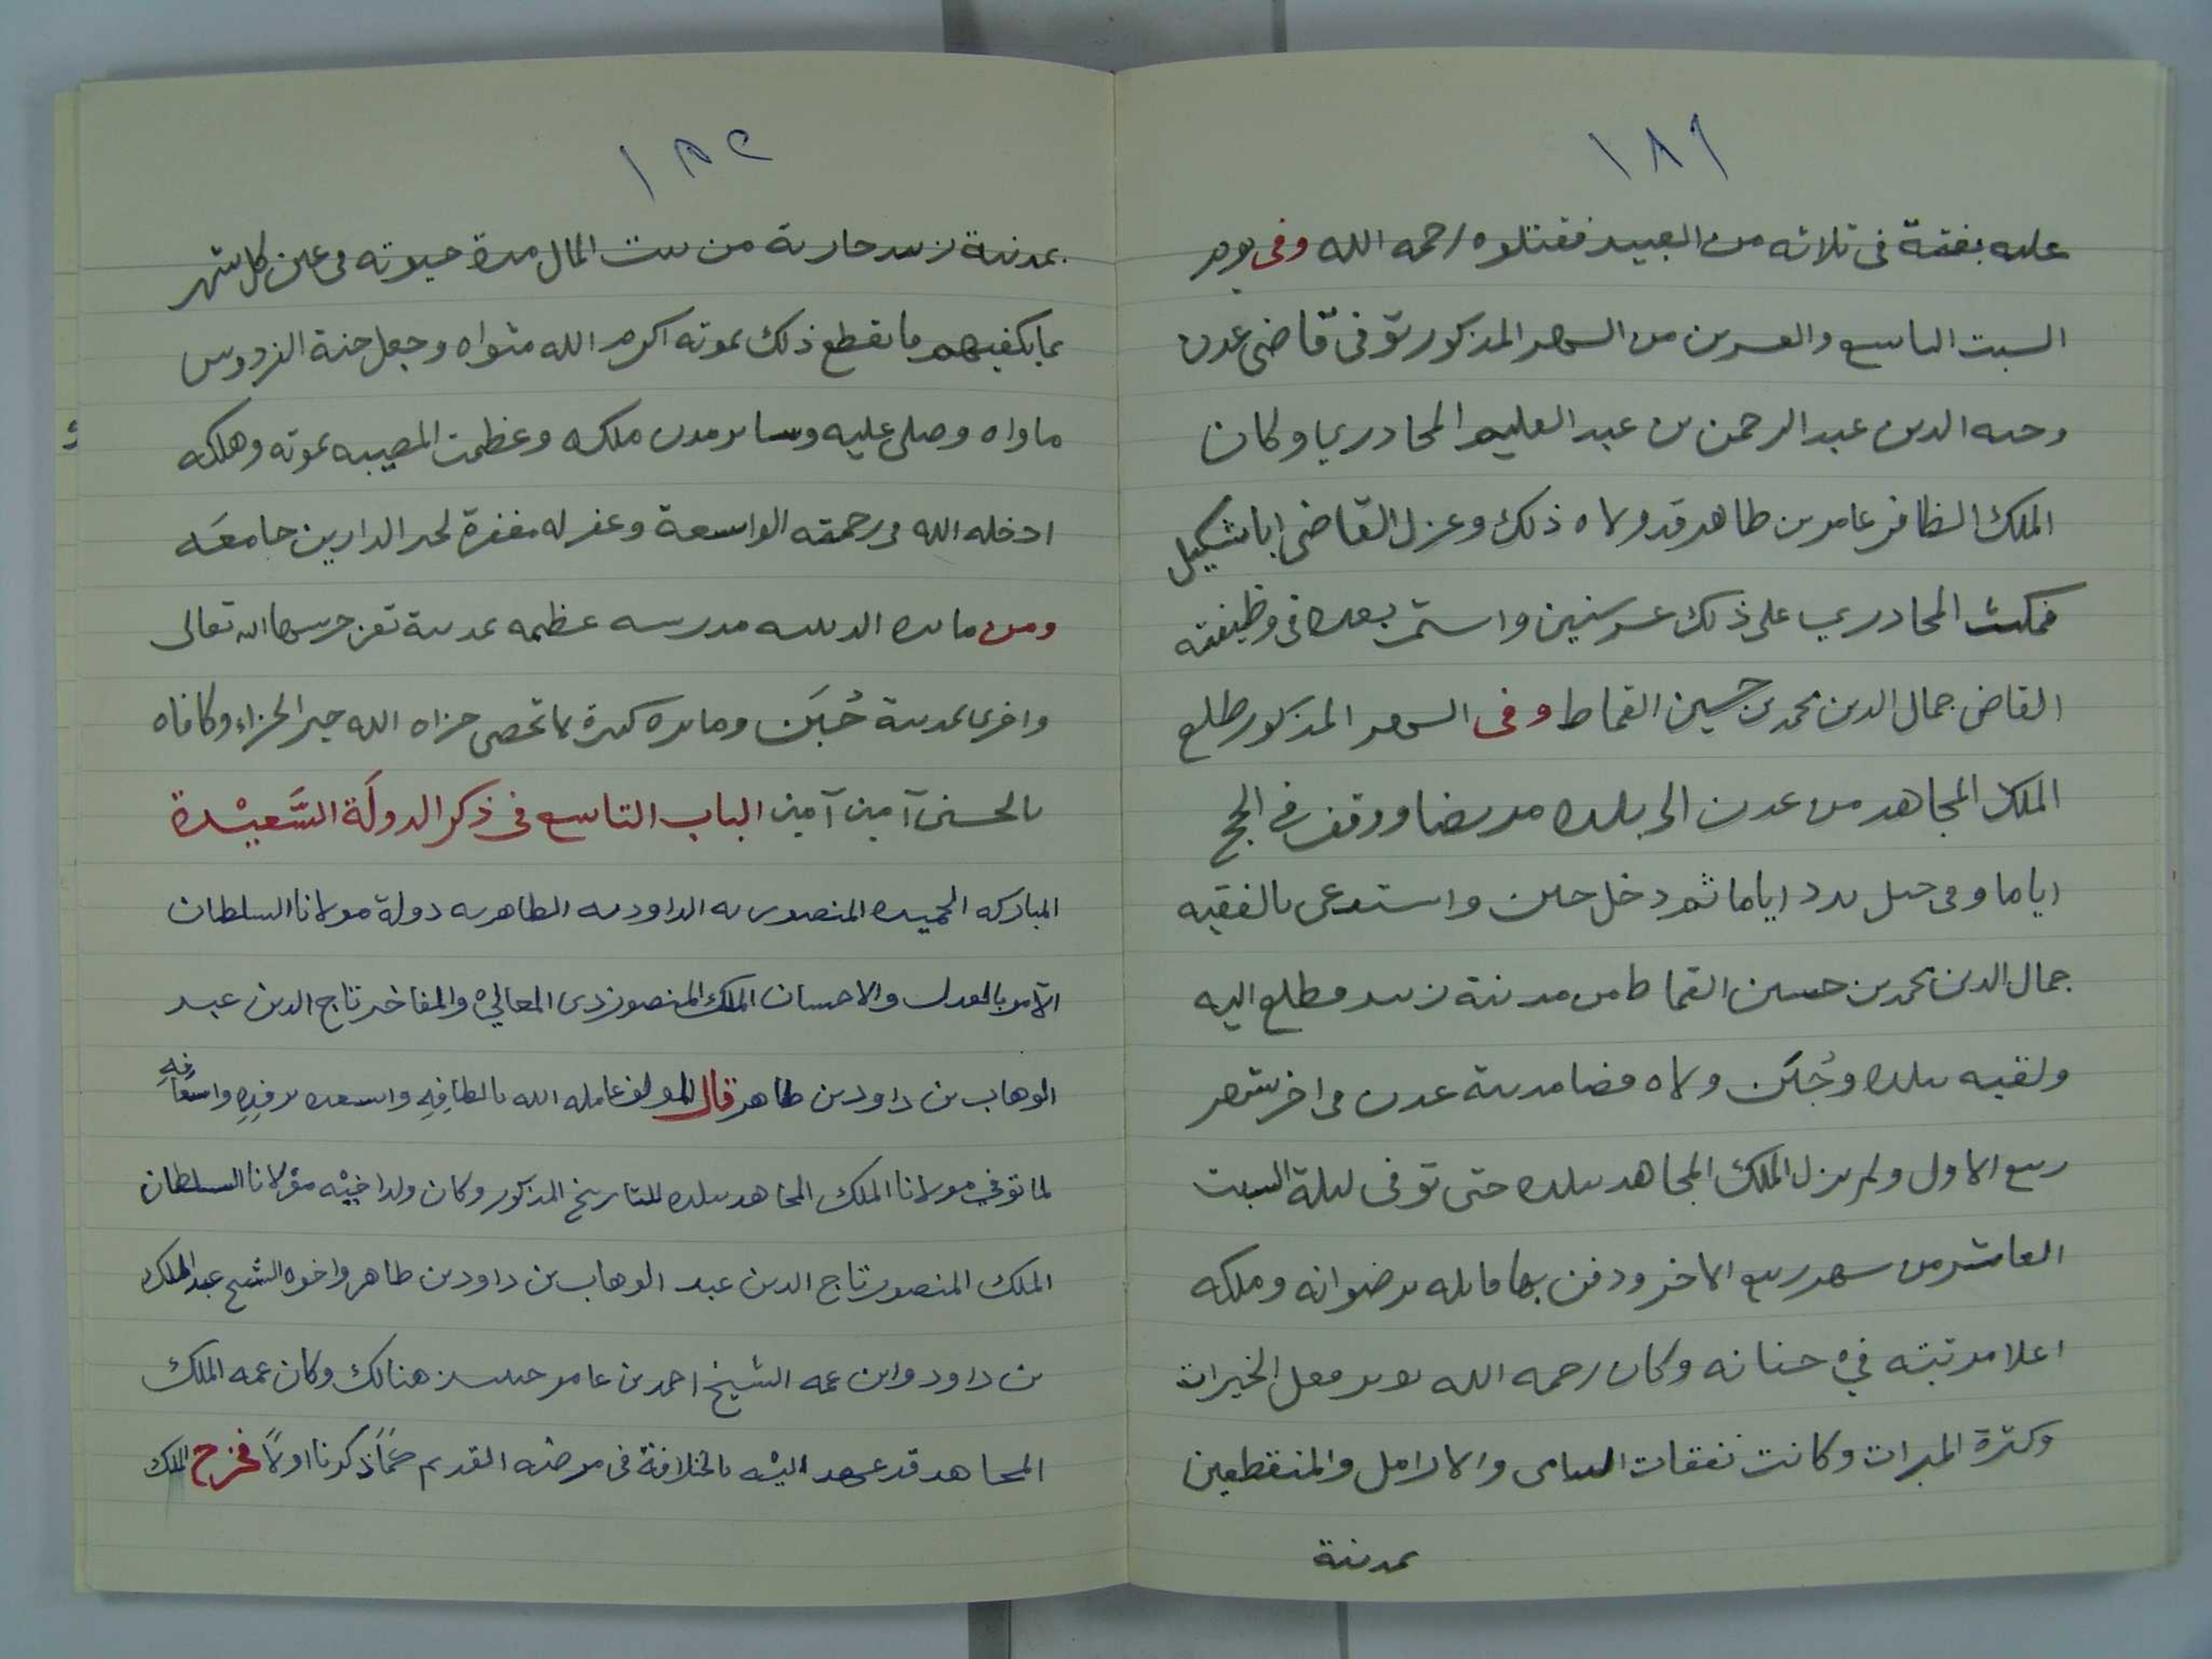 ١٨١
عليه بغتة فى ثلاثه من العبيد فقتلوه رحمه الله وفى يوم
السبت التاسع والعشرين من الشهر المذكور توفى قاضى عدن
وجيه الدين عبد الرحمن بن عبد العليم المحادري وكان
الملك الظافر عامر بن طاهر قد ولاه ذلك وعزل القاضى ابا شكيل
فمكث المحادري على ذلك عشر سنين واستمر بعده فى وظيفته
القاضى جمال الدين محمد بن حسين القماط وفى الشهر المذكور طلع
الملك المجاهد من عدن الى بلده مريضا ووقف فى
اياما وفى اياما ثم دخل جبن واستدعى بالفقيه
جمال الدين محمد بن حسين القماط من مدينة زبيد فطلع اليه
ولقيه ببلده وجُبَن ولاه قضا مدينة عدن فى اخر شهر
ربيع الاول ولم يزل الملك المجاهد ببلده حتى توفى ليلة السبت
العاشر من شهر ربيع الاخر ودفن بها قابله برضوانه وملكه
اعلا مرتبته في جنانه وكان رحمه الله فعل الخيرات
وكثرة المبرات وكانت نفقات اليتامى والارامل والمنقطعين
بمدينة
١٨٢
بمدينة زبيد جارية من بيت المال مدة حيوته فى كل شهر
بما يكفيهم فانقطع ذلك بموته اكرم الله مثواه وجعل جنة الفردوس
ماواه وصلى عليه وساير مدن ملكه وعظمت المصيبه بموته وهلكه
ادخله الله فى رحمته الواسعة وغفر له مغفرة لخير الدارين جامعَه
ومن ماثره الدينيه مدرسه عظيمه بمدينة تعز حرسها الله تعالى
واخرى بمدينة جُبَن وماثره كثيرة لا تحصى جزاه الله خير الجزاء وكافاه
بالحسنى آمين آمين الباب التاسع فى ذكر الدولَة السَّعيْدة
المباركه الحميده المنصوريه الداوديه الطاهريه دولة مولانا السلطان
الآمر بالعدل والاحسان الملك المنصور ذى المعاليْ والمفاخر تاج الدين عبد
الوهاب بن داود بن طاهر قال المولف عامله الله بالطافِهِ واسعده برفدِهِ واسعَافِهِ
لما توفي مولانا الملك المجاهد ببلده للتاريخ المذكور وكان ولد اخيْه موْلانا السلطان
الملك المنصور تاج الدين عبد الوهاب بن داود بن طاهر واخوه الشيخ عبد الملك
بن داود وابن عمه الشيخ احمد بن عامر هنالك وكان عمه الملك
المجاهد قد عهد اليْه بالخلافة فى مرضه القديم ذكرنا اولاً فخرج الملك